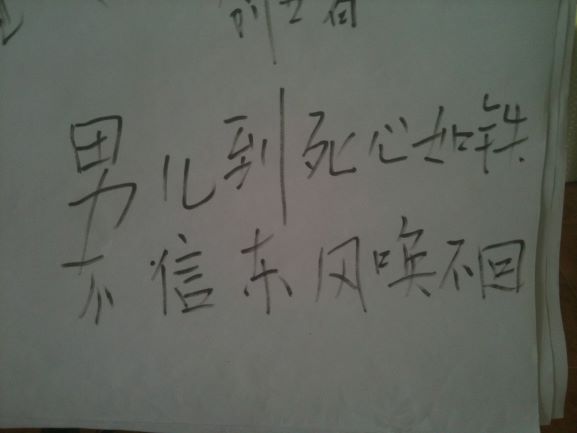 男儿到死心如铁
不信东风唤不回